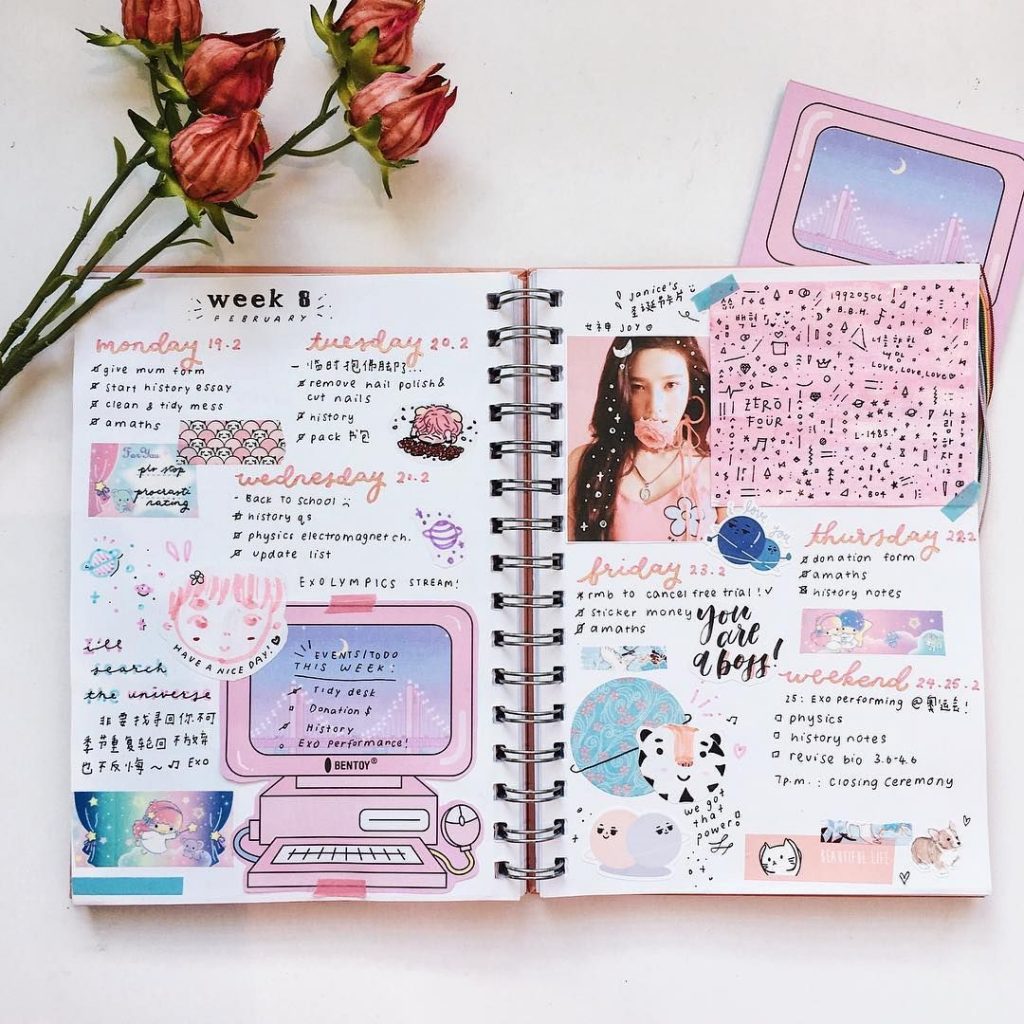 week 8
FEBRUARY
monday 19.2
give mum form
start history essay
clean & tidy mess
amaths
For You
pls stop
procrasti
nating
tuesday 20.2
- 临时抱佛脚了...
remove nail polish &
cut nails
history
pack 书包
wednesday 20.2
- Back to school
history qs
physics electromagnet ch.
update list
EXOLYMPICS STREAM!
HAVE A NICE DAY!
i'll
search
the universe
非要找寻回你不可
季节重复轮回不放弃
也不反悔～♫ EXO
EVENTS/TODO
THIS WEEK:
Tidy desk
Donation $
History
EXO Performance!
BENTOY
Janice's
圣诞节卡片
女神 JOY
19920506
백현
B.B.H.
LOVE, LOVE, LOVE
ZERO
FOUR
L-1485
804
사
랑
하
자
i love you
thursday 22.2
donation form
amaths
history notes
friday 23.2
* rmb to cancel free trial!
sticker money
amaths
you
are
a boss!
weekend 24-25.2
25: EXO performing @奥运会!
physics
history notes
revise bio 3.6-4.6
7p.m. : Closing Ceremony
we got
that
power
BEAUTIFUL LIFE